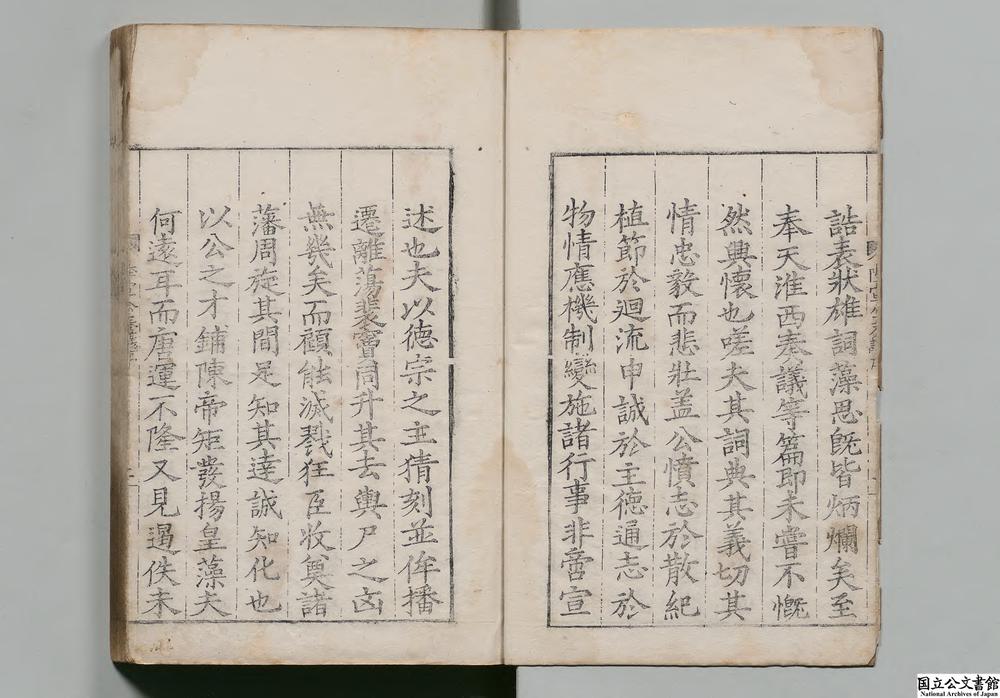 誥表狀雄詞藻思旣皆炳爛矣至
奉天淮西奏議等篇即未嘗不慨
然興懷也嗟夫其詞典其義切其
情忠毅而悲壯盖公憤志於散紀
植節於廻流申誠於主德通志於
物情應機制變施諸行事非啻宣
述也夫以德宗之主猜刻並侔播
遷離蕩裴竇同升其去輿尸之凶
無幾矣而顧能滅戮狂臣收奠諸
藩周旋其間足知其達誠知化也
以公之才鋪陳帝矩發揚皇藻夫
何遠耳而唐運不隆又見遏佚未
国立公文書館
National Archives of Japan